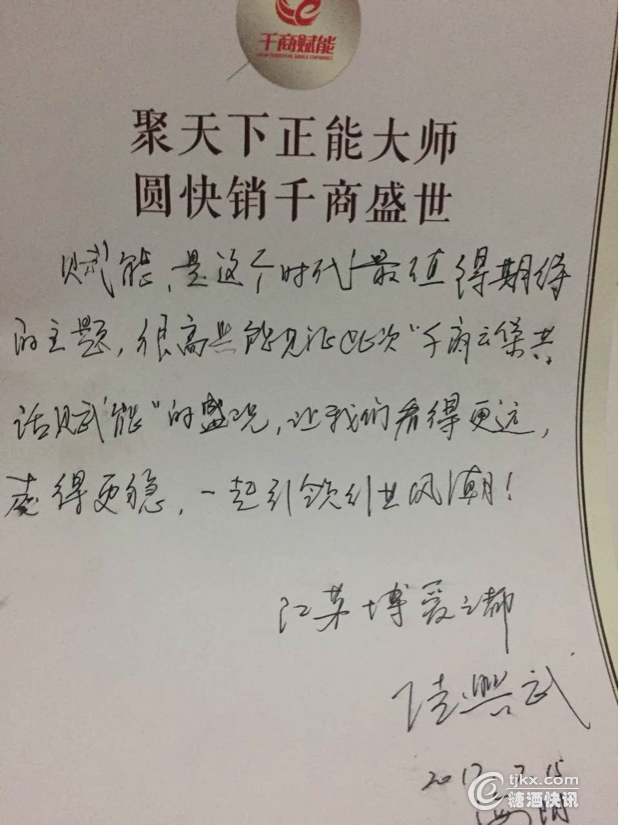 千商赋能
聚天下正能大师
圆快销千商盛世
赋能，是这个时代最值得期待
的主题，很高兴能见证此次“千商云集共
话赋能”的盛况，让我们看得更远，
走得更稳，一起引领引世风潮！
江苏博爱之都
陆兴武
2017.7.15
tjkx.com
糖酒快讯